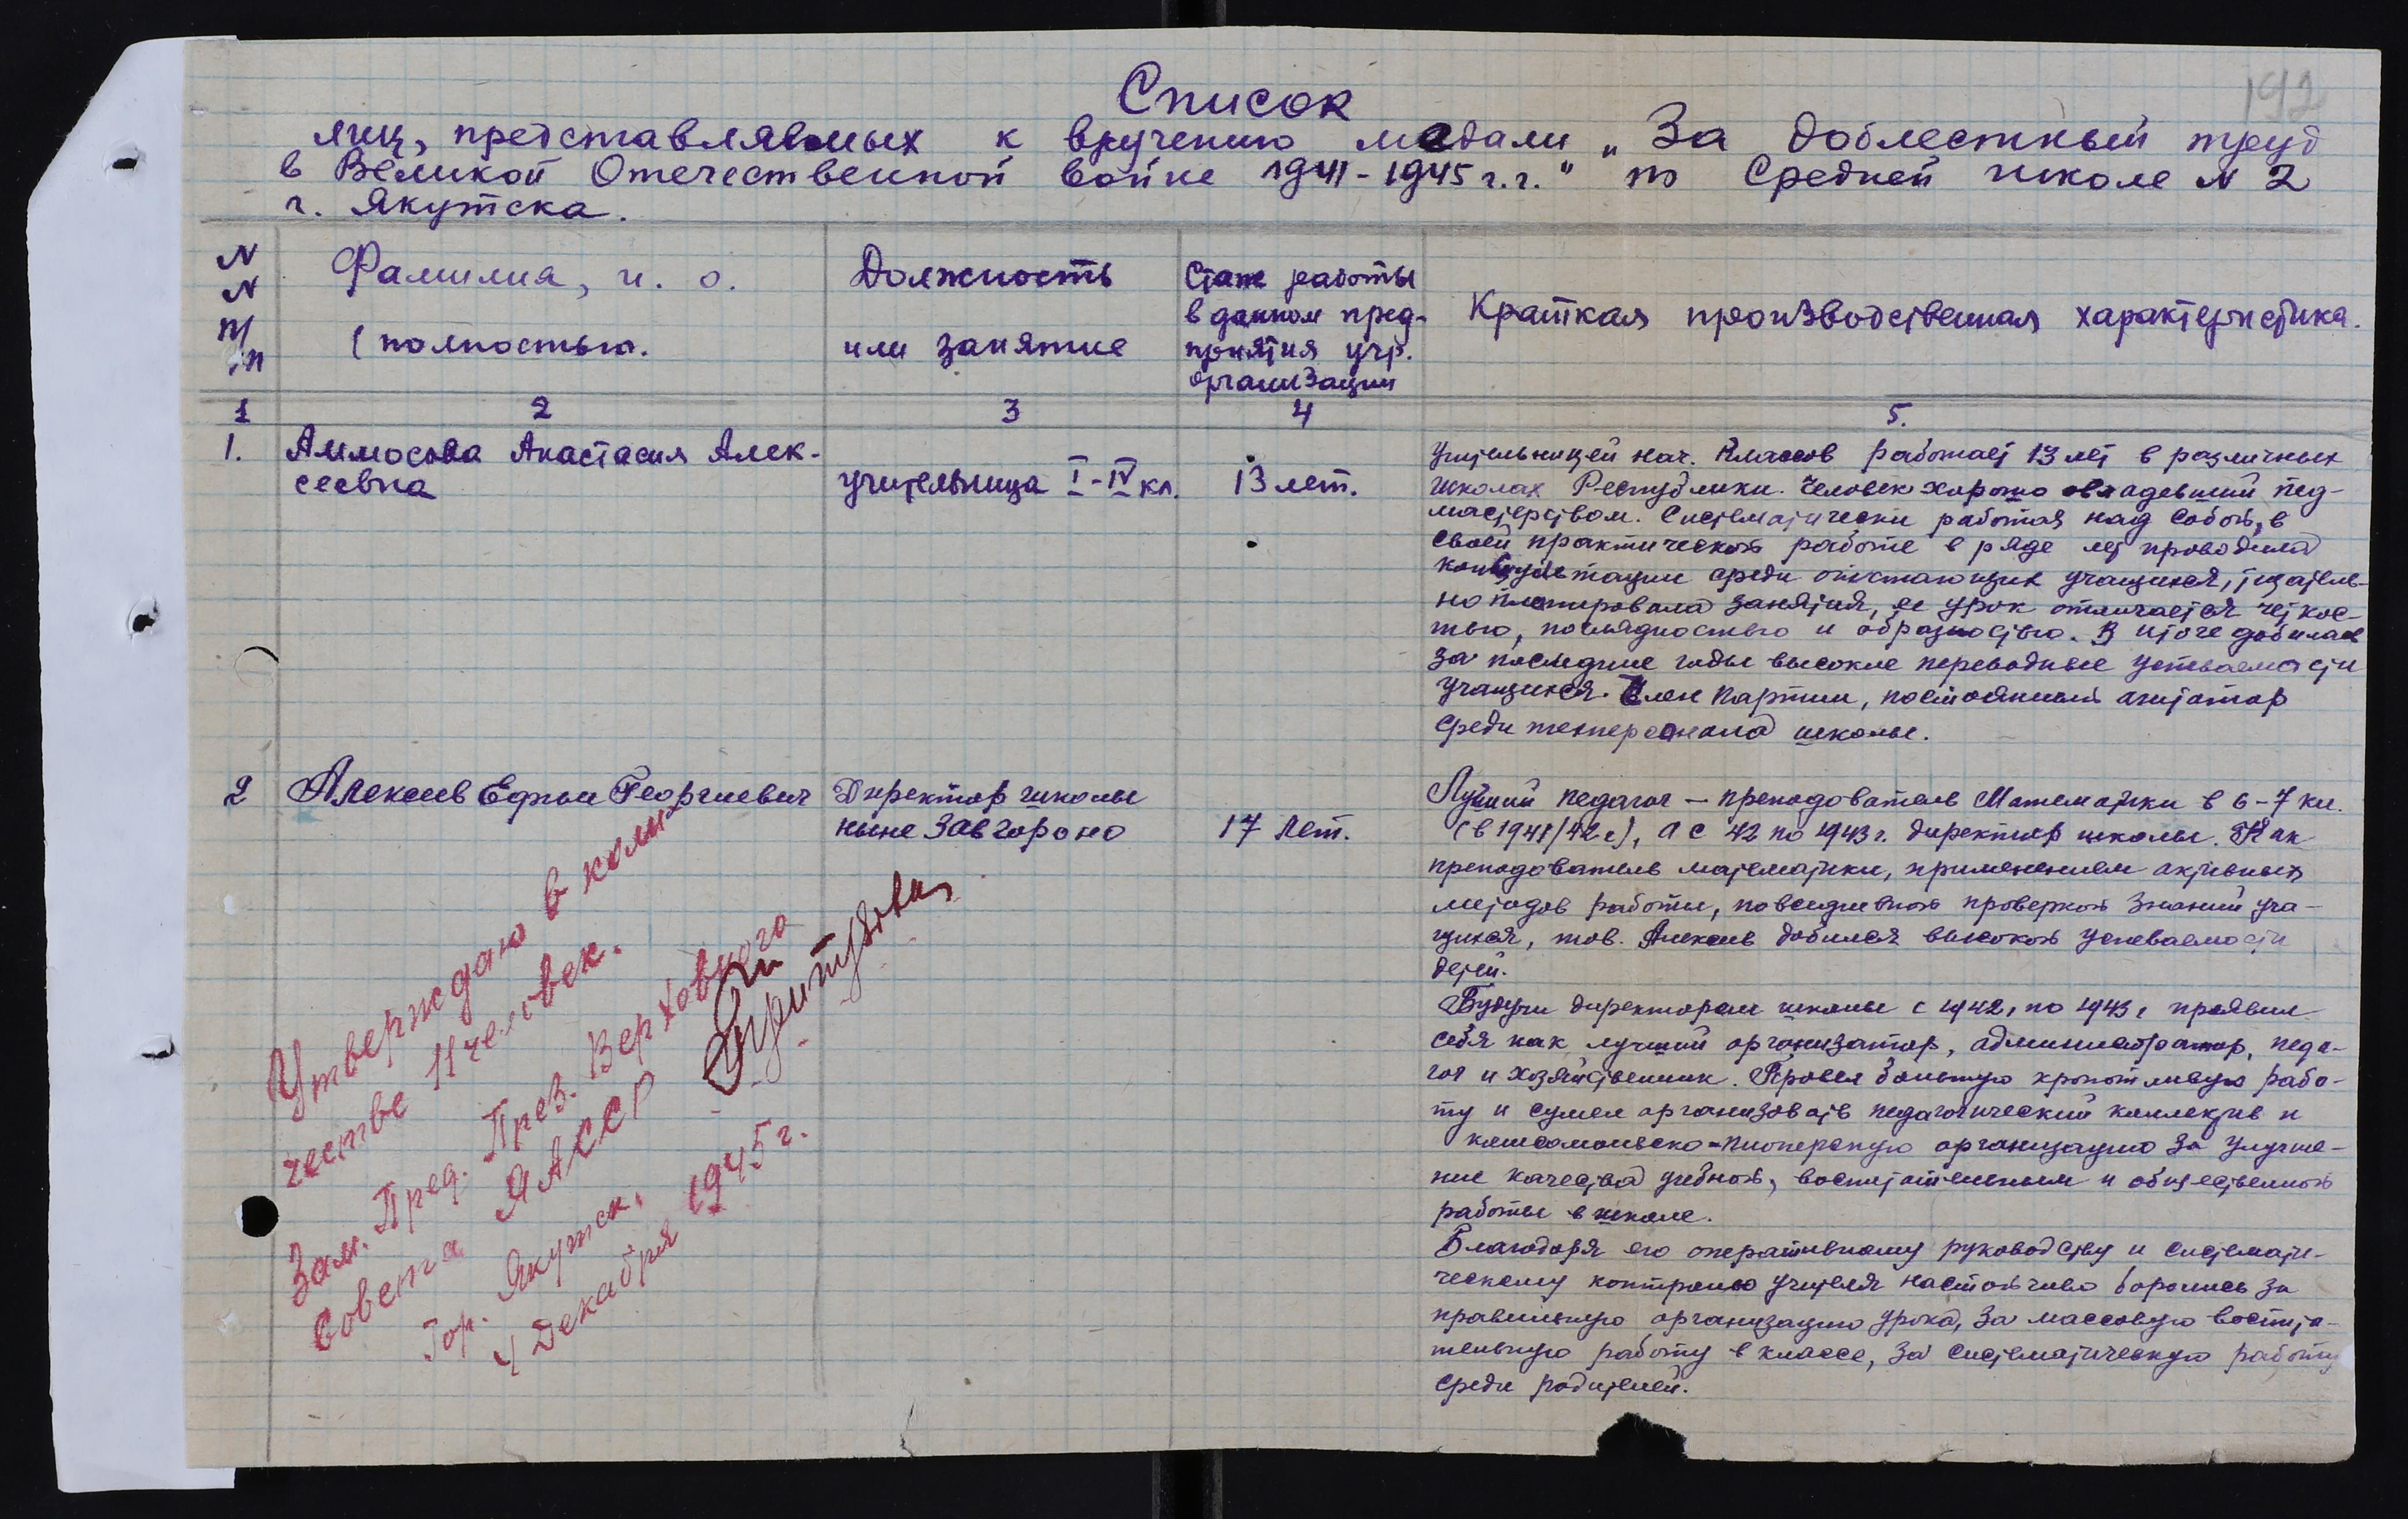 192
Список
лиц, представляемых к вручению медали „За доблестный труд
в Великой Отечественной войне 1941-1945 г.г." по Средней школе N 2
г. Якутска.
N
N
п/
п
Фамилия, и. о.
(полностью.
Должность
или занятие
Стаж работы
в данном пред-
приятия учр.
организации
Краткая производственная характеристика.
1 2 3 4 5.
1. Аммосова Анастасия Алек-
сеевна
учительница I-IV кл.
13 лет.
Учительницей нач. классов работает 13 лет в различных
школах Республики. Человек хорошо овладевший пед-
мастерством. Систематически работая над собой, в
своей практической работе в ряде лет проводила
консультации среди отстающих учащихся, тщатель-
но планировала занятия, ее урок отличается четкос-
тью, наглядностью и образностью. В итоге добилась
за последние годы высокие переводные успеваемости
учащихся. Член партии, постоянный агитатор
среди техперсонала школы.
2 Алексеев Ефим Георгиевич
Директор школы
ныне Завгороно
17 лет.
Лучший педагог — преподаватель Математики в 6-7 кл.
(в 1941/42 г), а с 42 по 1943 г. директор школы. Как
преподаватель математики, применением активных
методов работы, повседневной проверкой знаний уча-
щихся, тов. Алексеев добился высокой успеваемости
детей.
Будучи директором школы с 1942, по 1943, проявил
себя как лучший организатор, администратор, педа-
гог и хозяйственник. Провел большую кропотливую рабо-
ту и сумел организовать педагогический коллектив и
комсомольско-пионерскую организацию за улучше-
ние качества учебной, воспитательным и общественной
работы в школе.
Благодаря его оперативному руководству и системати-
ческому контролю учителя настойчиво боролись за
правильную организацию урока, за массовую воспита-
тельную работу в классе, за систематическую работу
среди родителей.
Утверждаю в коли-
честве 11 человек.
Зам. Пред. През. Верховного
Совета ЯАССР
Гор. Якутск,
4 Декабря 1945 г.